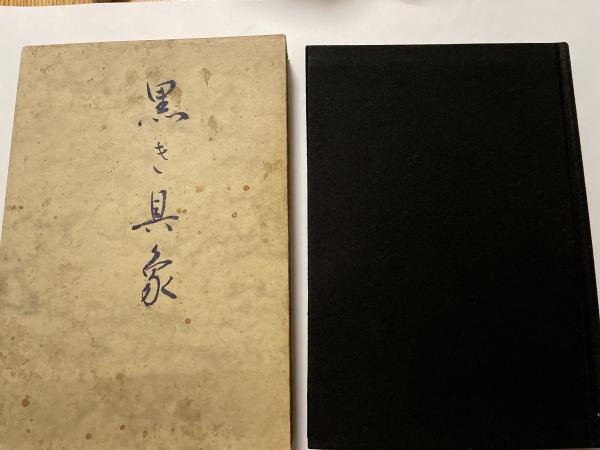 黒き具象